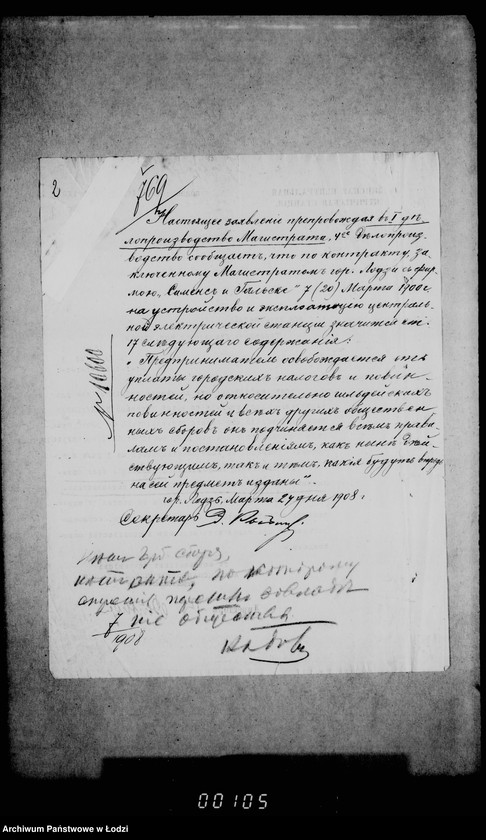 2
769
Настоящее заявленіе препровождая въ I дѣ-
лопроизводство Магистрата, Дѣлопроиз-
водство сообщаетъ, что по контракту, за-
ключенному Магистратомъ гор. Лодзи съ фир-
мою „Сименсъ и Гальске" 7 (20) Марта 1900 г.
на устройство и эксплоатацію централь-
ной электрической станціи значится ст.
17 слѣдующаго содержанія:
„Предприниматель освобождается отъ
уплаты городскихъ налоговъ и повин-
ностей, но относительно гильдейскихъ
повинностей и всѣхъ другихъ обществен-
ныхъ сборовъ онъ подчиняется всѣмъ прави-
ламъ и постановленіямъ, какъ нынѣ дѣй-
ствующимъ, такъ и тѣмъ, какія будутъ впредь
на сей предметъ изданы".
гор. Лодзь, Марта 24 дня 1908 г.
Секретарь
№ 10600
по которому
общества
1908
00105
Archiwum Państwowe w Łodzi